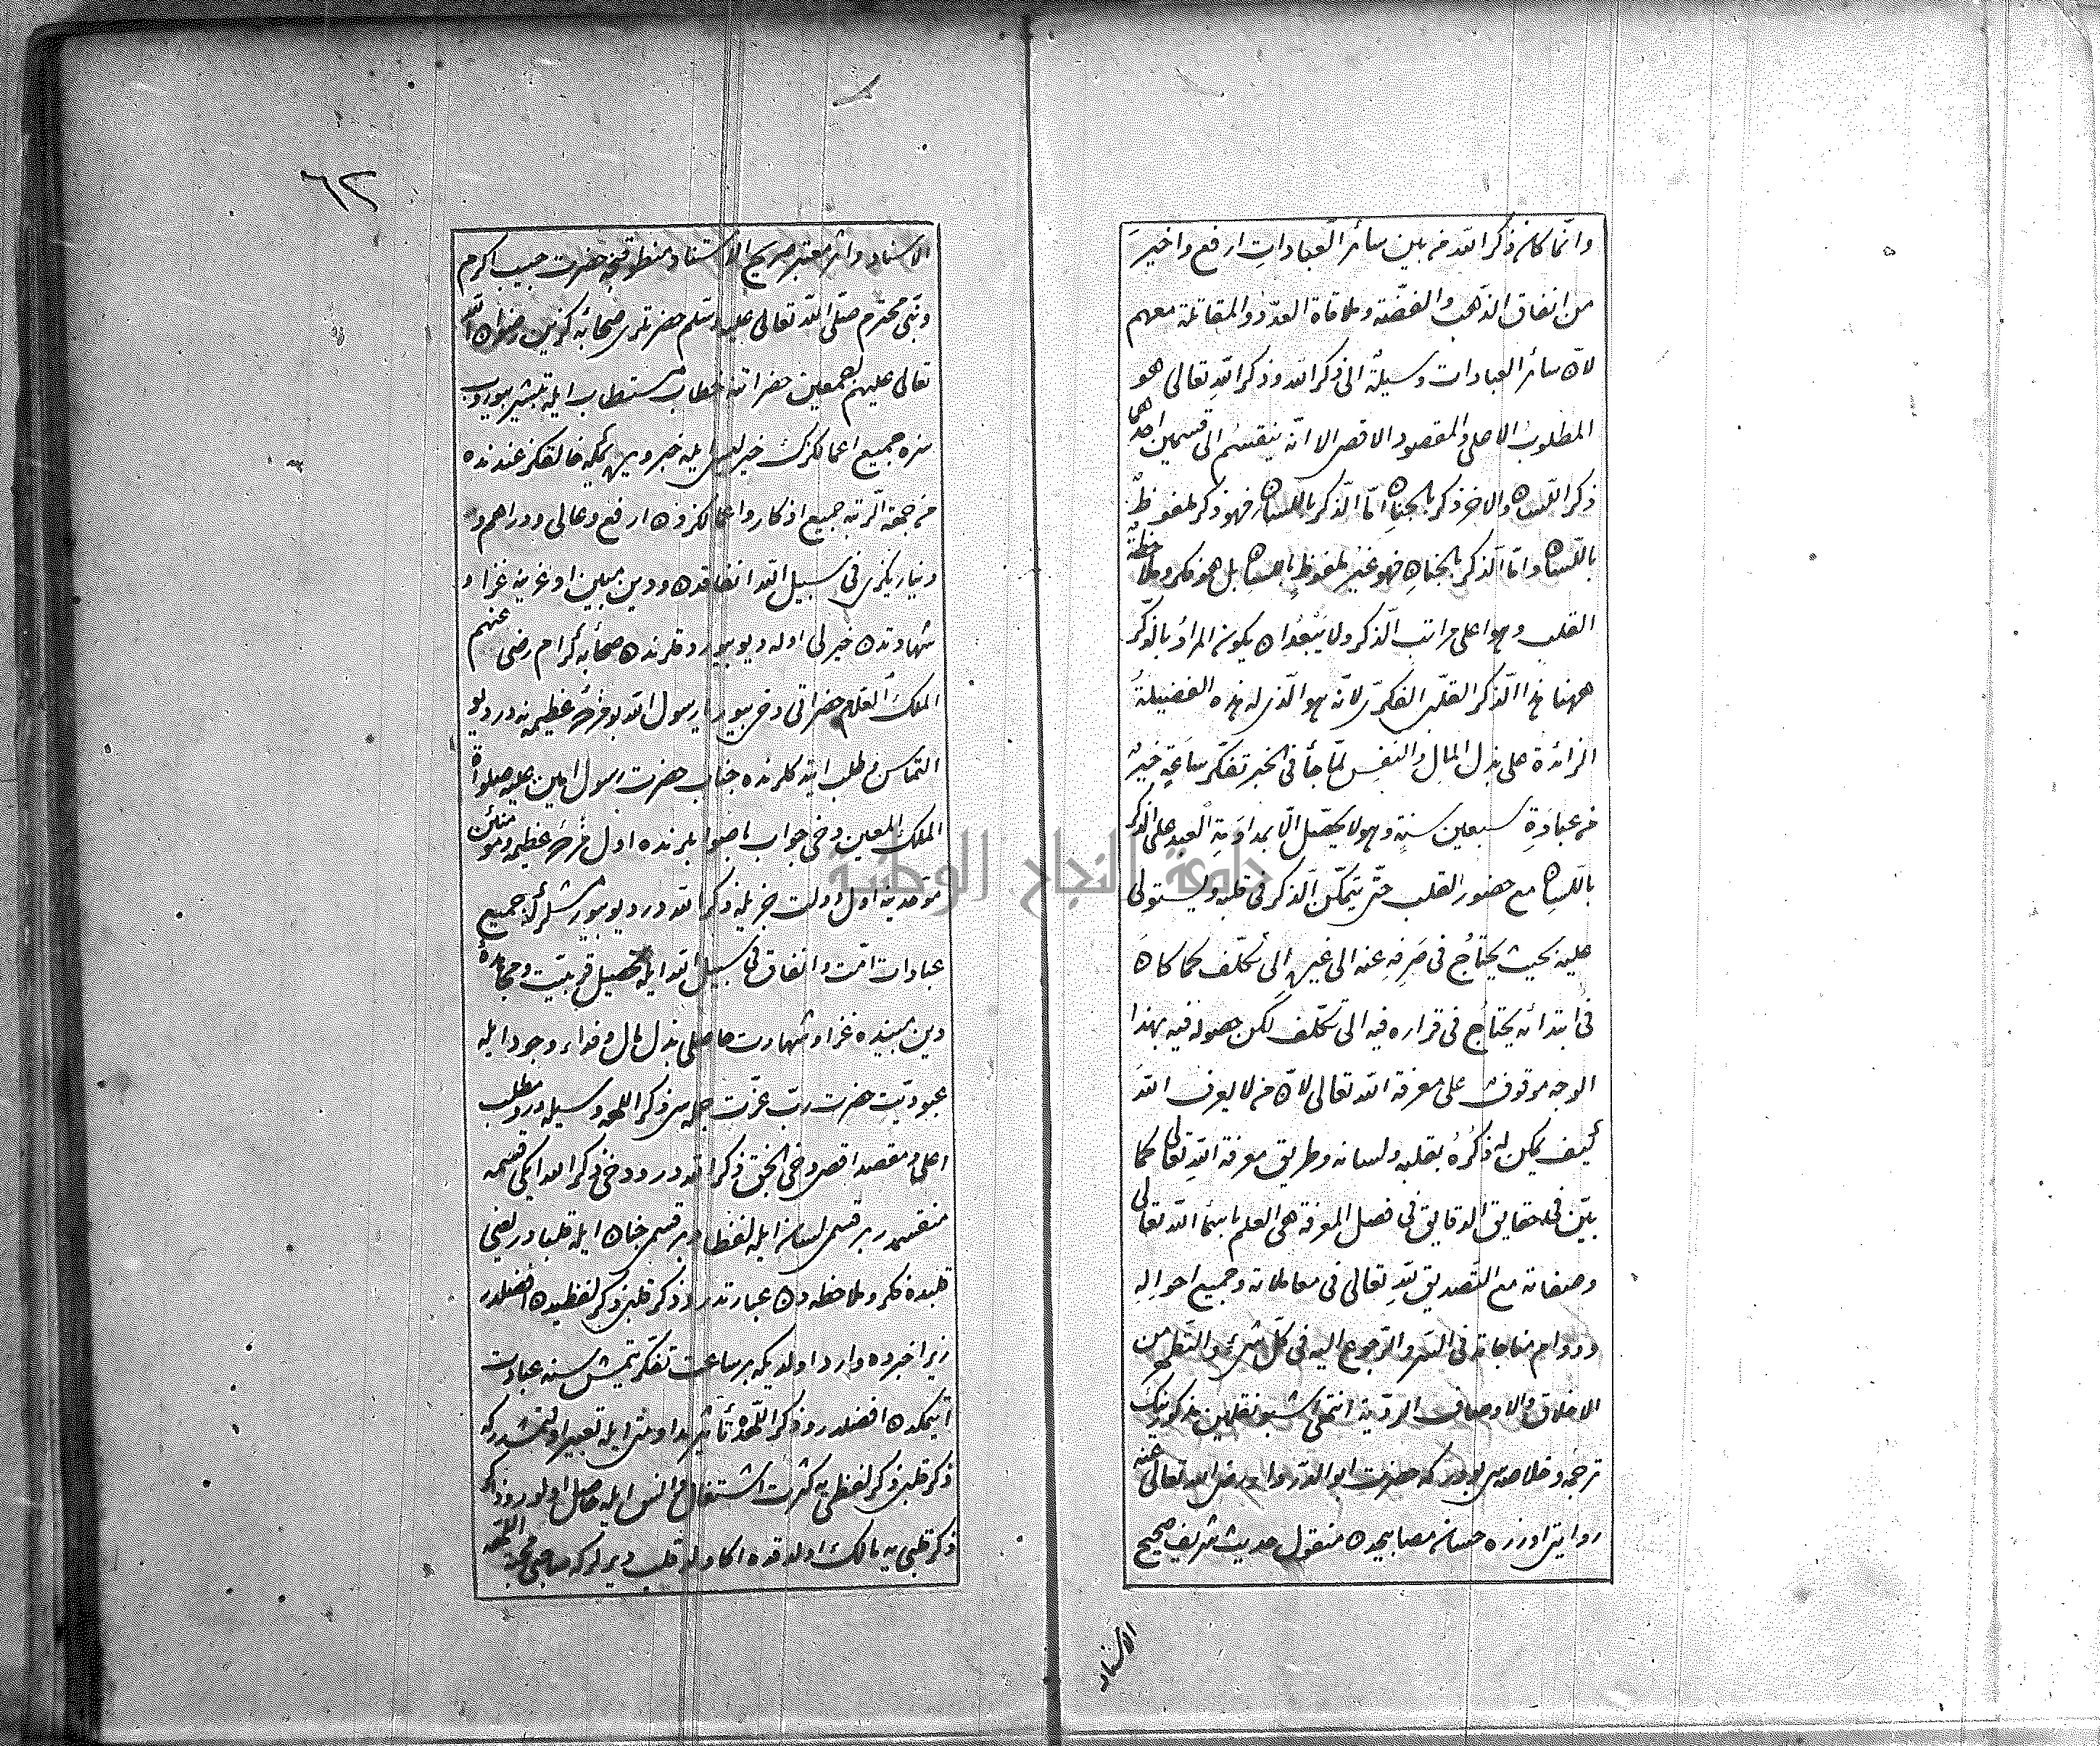 وانما كان ذكر الله من بين سائر العبادات ارفع واخير
من انفاق الذهب والفضة وملاقاة العدو والمقاتلة معهم
لان سائر العبادات وسيلة الى ذكر الله وذكر الله تعالى هو
المطلوب الاصلى والمقصود الاقصى الا انه ينقسم الى قسمين احدهما
ذكر اللسان والاخر ذكر بالجنان اما الذكر باللسان فهو ذكر ملفوظ
باللسان واما الذكر بالجنان فهو غير ملفوظ باللسان بل هو فكر وملاحظة
القلب وهو اعلى مراتب الذكر ولا يبعد ان يكون المراد بالذكر
ههنا هذا الذكر القلبى الفكرى لانه هو الذى له هذه الفضيلة
الزائدة على بذل المال والنفس لما جاء فى الخبر تفكر ساعة خير
من عبادة سبعين سنة وهو لا يحصل الا بمداومة العبد على الذكر
باللسان مع حضور القلب حتى يتمكن الذكر فى قلبه ويستولى
عليه بحيث يحتاج فى صرفه عنه الى غيره الى تكلف كما كان
فى ابتدائه يحتاج فى قراره فيه الى تكلف لكن حصوله فيه بهذا
الوجه موقوف على معرفة الله تعالى لان من لا يعرف الله
كيف يمكن له ذكره بقلبه ولسانه وطريق معرفة الله تعالى كما
بين فى حقايق الدقايق فى فصل المعرفة هى العلم باسماء الله تعالى
وصفاته مع التصديق لله تعالى فى معاملاته وجميع احواله
ودوام مناجاته فى السر والرجوع اليه فى كل شئ والتطهر من
الاخلاق والاوصاف الردية انتهى شبو نقلين مذكورينك
ترجمه وخلاصه سى بودر كه حضرت ابو الدرداء رضى الله تعالى عنه
روايتى اوزره حسان مصابيحدن منقول حديث شريف صحيح
الاسناد
٦٢
الاسناد واثر معتبر صريح الاستناد منطوقنجه حضرت حبيب اكرم
ونبى محترم صلى الله تعالى عليه وسلم حضرتلرى صحابه كزين رضوان الله
تعالى عليهم اجمعين حضراتنه خطاب مستطاب ايله تبشير بيوروب
سزه جميع اعمالكزك خيرليسى ايله خبر ويرهيمكه خالقكز عندنده
من جهة الرتبه جميع اذكار واعمالكزدن ارفع وعالى ودراهم و
دينار يكزى فى سبيل الله انفاقدن ودين مبين اوغرينه غزا و
شهادتدن خيرلى اوله ديو بيوردقلرنده صحابه كرام رضى عنهم
الملك العلام حضراتى دخى بيور يا رسول الله بو فرحه عظيمه نه در ديو
التماس وطلب ايتدكلرنده جناب حضرت رسول امين عليه صلوات
الملك المعين دخى جواب با صوابلرنده اول فرحه عظيمه ومؤمنين
موحدينه اول دولت جزيله ذكر الله در ديو بيورمشلر لان جميع
عبادات امت وانفاق فى سبيل الله ايله تحصيل قربيت ومجاهده
دين مبينده غزا وشهادت حاصلى بذل مال وفداء وجود ايله
عبوديت حضرت رب عزت جمله سى ذكر اللهه وسيله در ومطلب
اعلى ومقصد اقصى دخى الحق ذكر الله در ودخى ذكر الله ايكى قسمه
منقسمدر بر قسمى لسان ايله لفظا وبر قسمى جنان ايله قلبا در يعنى
قلبده فكر وملاحظه دن عبارتدر وذكر قلبى ذكر لفظيدن افضلدر
زيرا خبرده وارد اولديكه بر ساعت تفكر يتمش سنه عبادت
ايتمكدن افضلدر وذكر اللهك تأثيرى مداومتى ايله تعبير اولنمشدر كه
ذكر قلبى ذكر لفظى يه كثرت اشتغال وانس ايله حاصل اولور وذاكر
ذكر قلبى يه مالك اولدقده اكا ولد قلب ديرلر كه صاحبى محبة اللهه